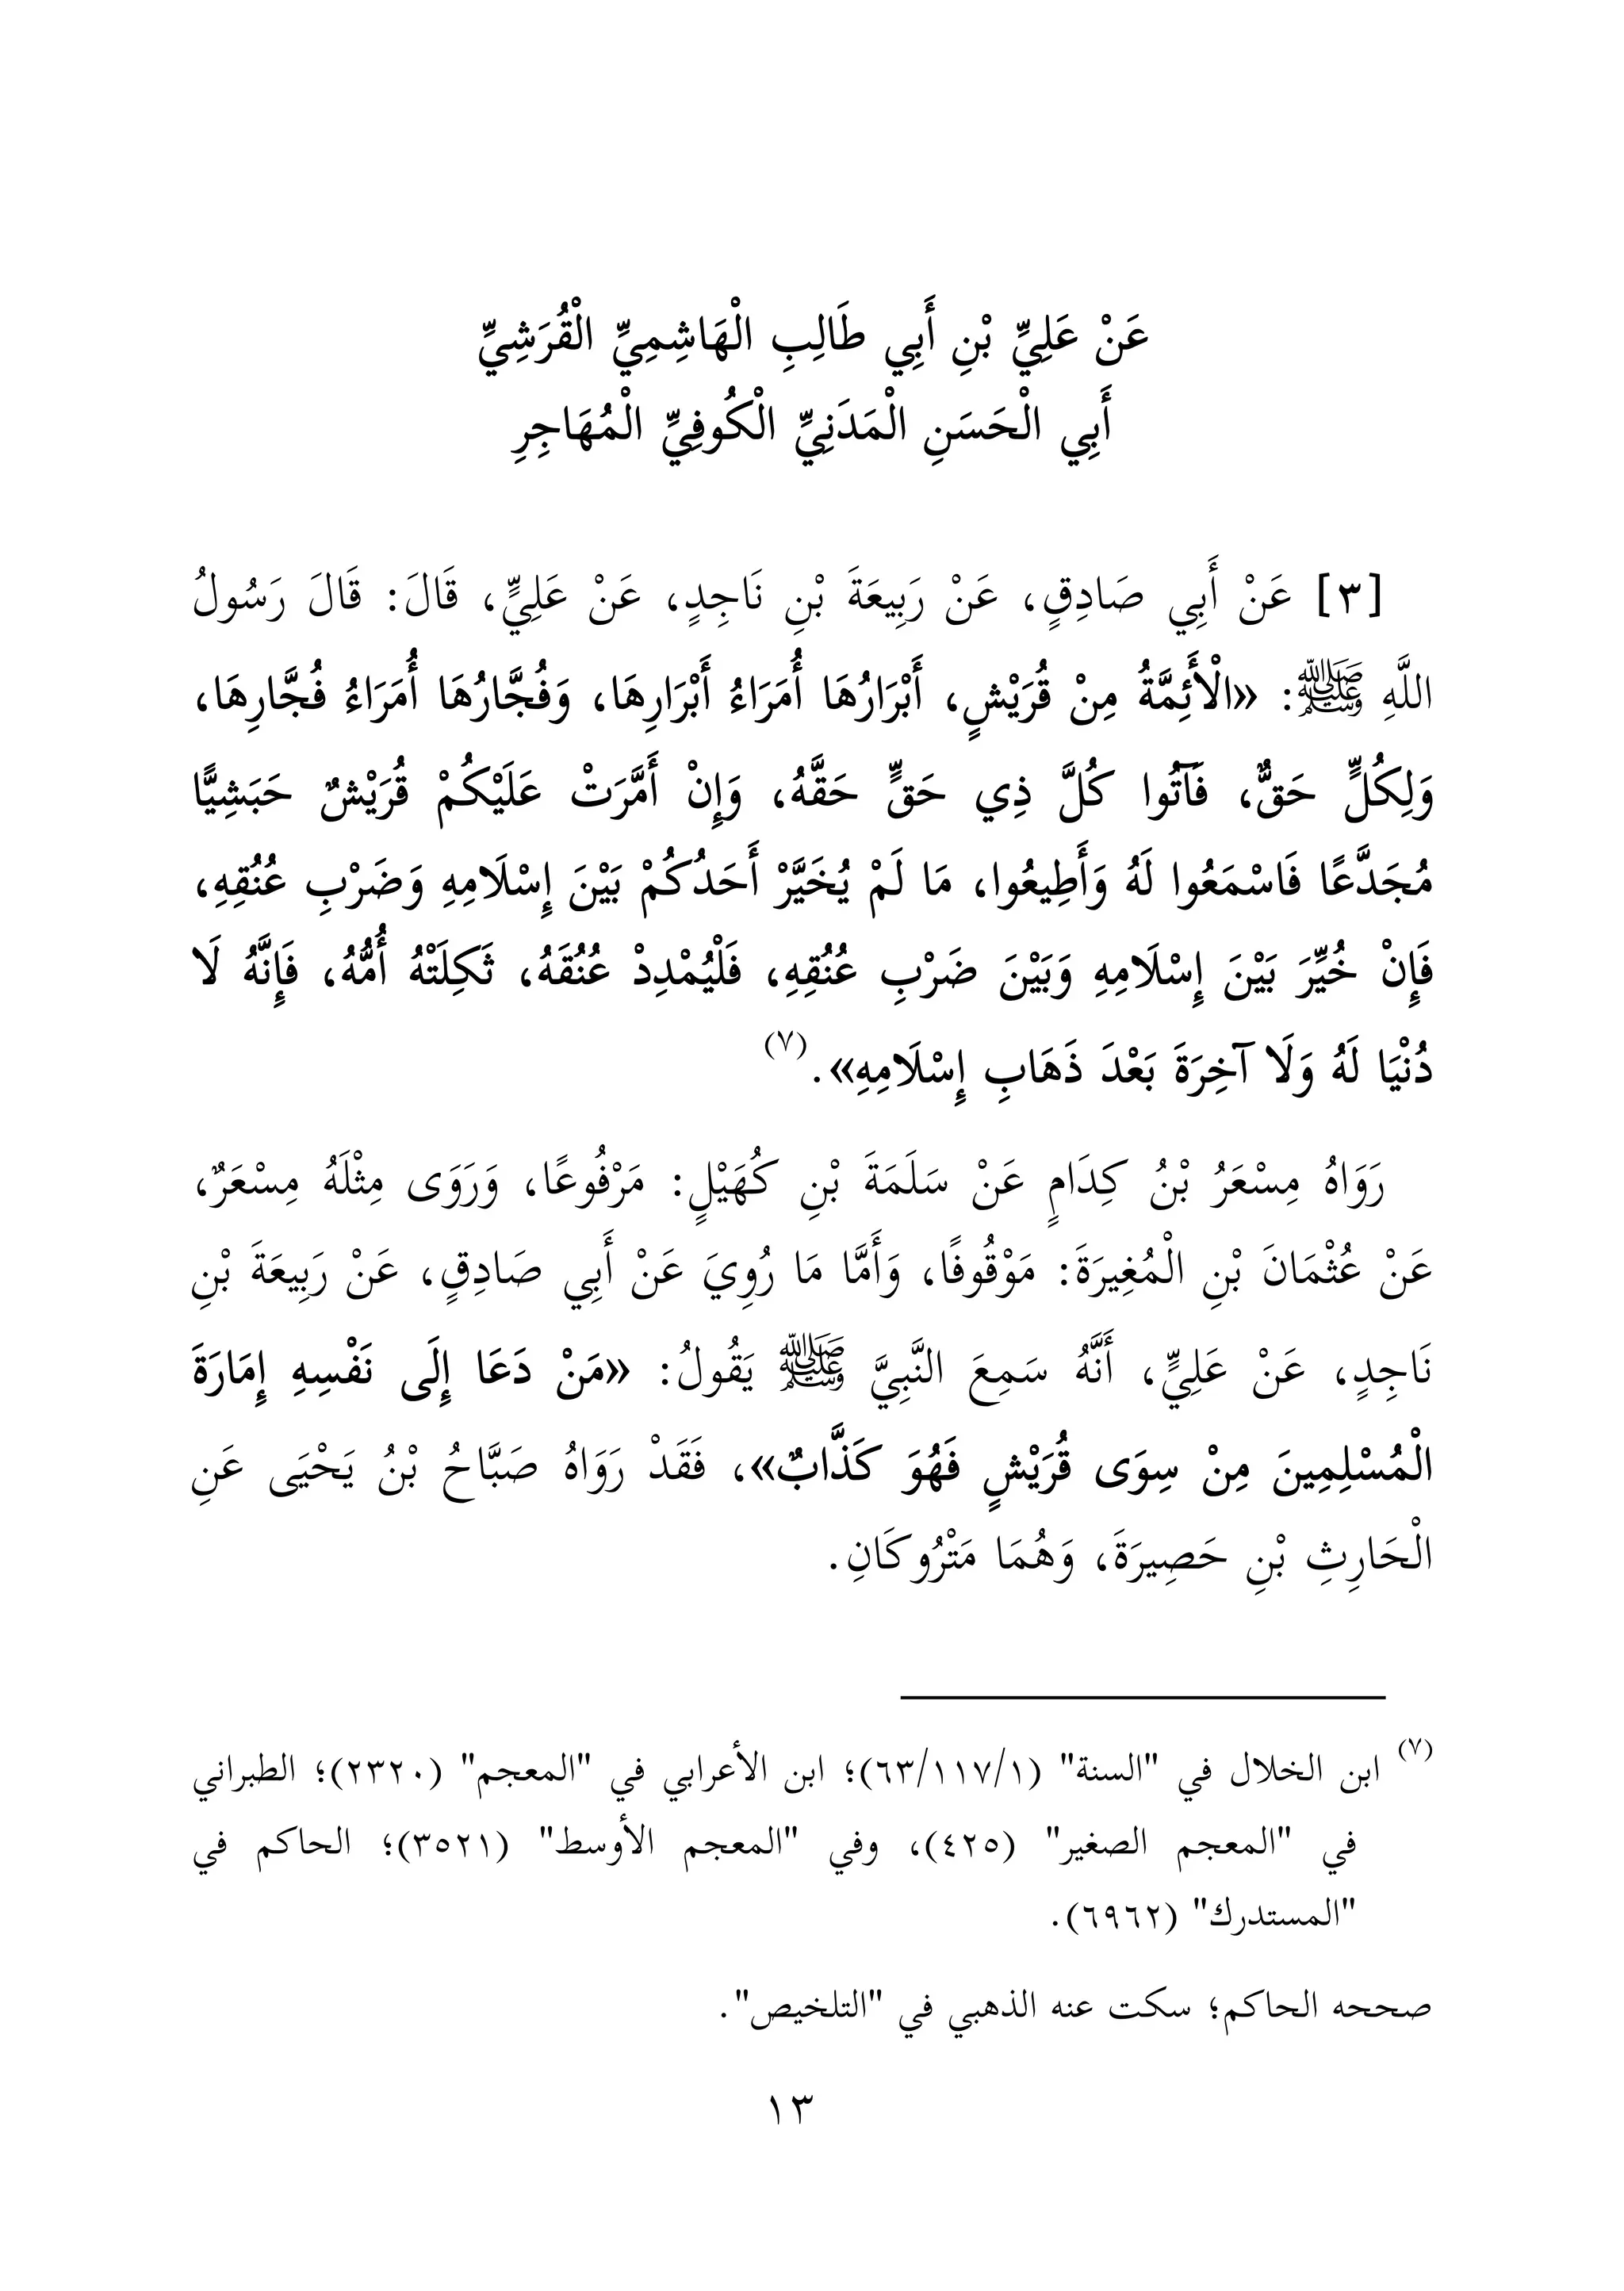 عَنْ عَلِيِّ بْنِ أَبِي طَالِبِ الْهَاشِمِيِّ الْقُرَشِيِّ
أَبِي الْحَسَنِ الْمَدَنِيِّ الْكُوفِيِّ الْمُهَاجِرِ
[٣] عَنْ أَبِي صَادِقٍ، عَنْ رَبِيعَةَ بْنِ نَاجِدٍ، عَنْ عَلِيٍّ، قَالَ: قَالَ رَسُولُ
اللَّهِ ﷺ: «الْأَئِمَّةُ مِنْ قُرَيْشٍ، أَبْرَارُهَا أُمَرَاءُ أَبْرَارِهَا، وَفُجَّارُهَا أُمَرَاءُ فُجَّارِهَا،
وَلِكُلٍّ حَقٌّ، فَآتُوا كُلَّ ذِي حَقٍّ حَقَّهُ، وَإِنْ أَمَّرَتْ عَلَيْكُمْ قُرَيْشٌ حَبَشِيًّا
مُجَدَّعًا فَاسْمَعُوا لَهُ وَأَطِيعُوا، مَا لَمْ يُخَيَّرْ أَحَدُكُمْ بَيْنَ إِسْلَامِهِ وَضَرْبِ عُنُقِهِ،
فَإِنْ خُيِّرَ بَيْنَ إِسْلَامِهِ وَبَيْنَ ضَرْبِ عُنُقِهِ، فَلْيُمْدِدْ عُنُقَهُ، ثَكِلَتْهُ أُمُّهُ، فَإِنَّهُ لَا
دُنْيَا لَهُ وَلَا آخِرَةَ بَعْدَ ذَهَابِ إِسْلَامِهِ».(٧)
رَوَاهُ مِسْعَرُ بْنُ كِدَامٍ عَنْ سَلَمَةَ بْنِ كُهَيْلٍ: مَرْفُوعًا، وَرَوَى مِثْلَهُ مِسْعَرٌ،
عَنْ عُثْمَانَ بْنِ الْمُغِيرَةَ: مَوْقُوفًا، وَأَمَّا مَا رُوِيَ عَنْ أَبِي صَادِقٍ، عَنْ رَبِيعَةَ بْنِ
نَاجِدٍ، عَنْ عَلِيٍّ، أَنَّهُ سَمِعَ النَّبِيَّ ﷺ يَقُولُ: «مَنْ دَعَا إِلَى نَفْسِهِ إِمَارَةَ
الْمُسْلِمِينَ مِنْ سِوَى قُرَيْشٍ فَهُوَ كَذَّابٌ»، فَقَدْ رَوَاهُ صَبَّاحُ بْنُ يَحْيَى عَنِ
الْحَارِثِ بْنِ حَصِيرَةَ، وَهُمَا مَتْرُوكَانِ.
(٧) ابن الخلال في "السنة" (٦٣/١١٧/١)؛ ابن الأعرابي في "المعجم" (٢٣٢٠)؛ الطبراني
في "المعجم الصغير" (٤٢٥)، وفي "المعجم الأوسط" (٣٥٢١)؛ الحاكم في
"المستدرك" (٦٩٦٢).
صححه الحاكم؛ سكت عنه الذهبي في "التلخيص".
١٣